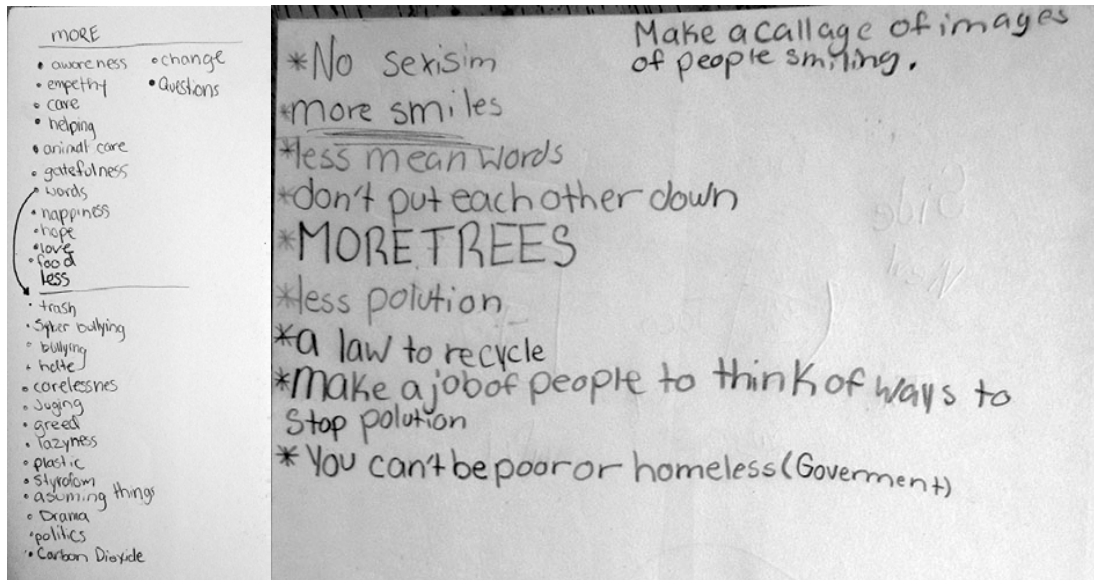 MORE
• awareness
• empethy
• care
• helping
• animal care
• gatefulness
• words
• happiness
• hope
• love
• food
• change
• Questions
less
• trash
• Syber bullying
• bullying
• hate
• carelessnes
• Juging
• greed
• lazyness
• plastic
• Styrofom
• asuming things
• Drama
• politics
• Carbon Dioxide
Make a callage of images
of people smiling.
*No sexisim
*more smiles
*less mean words
*don't put each other down
*MORE TREES
*less polution
*a law to recycle
*make a job of people to think of ways to
stop polution
*You can't be poor or homeless (Goverment)